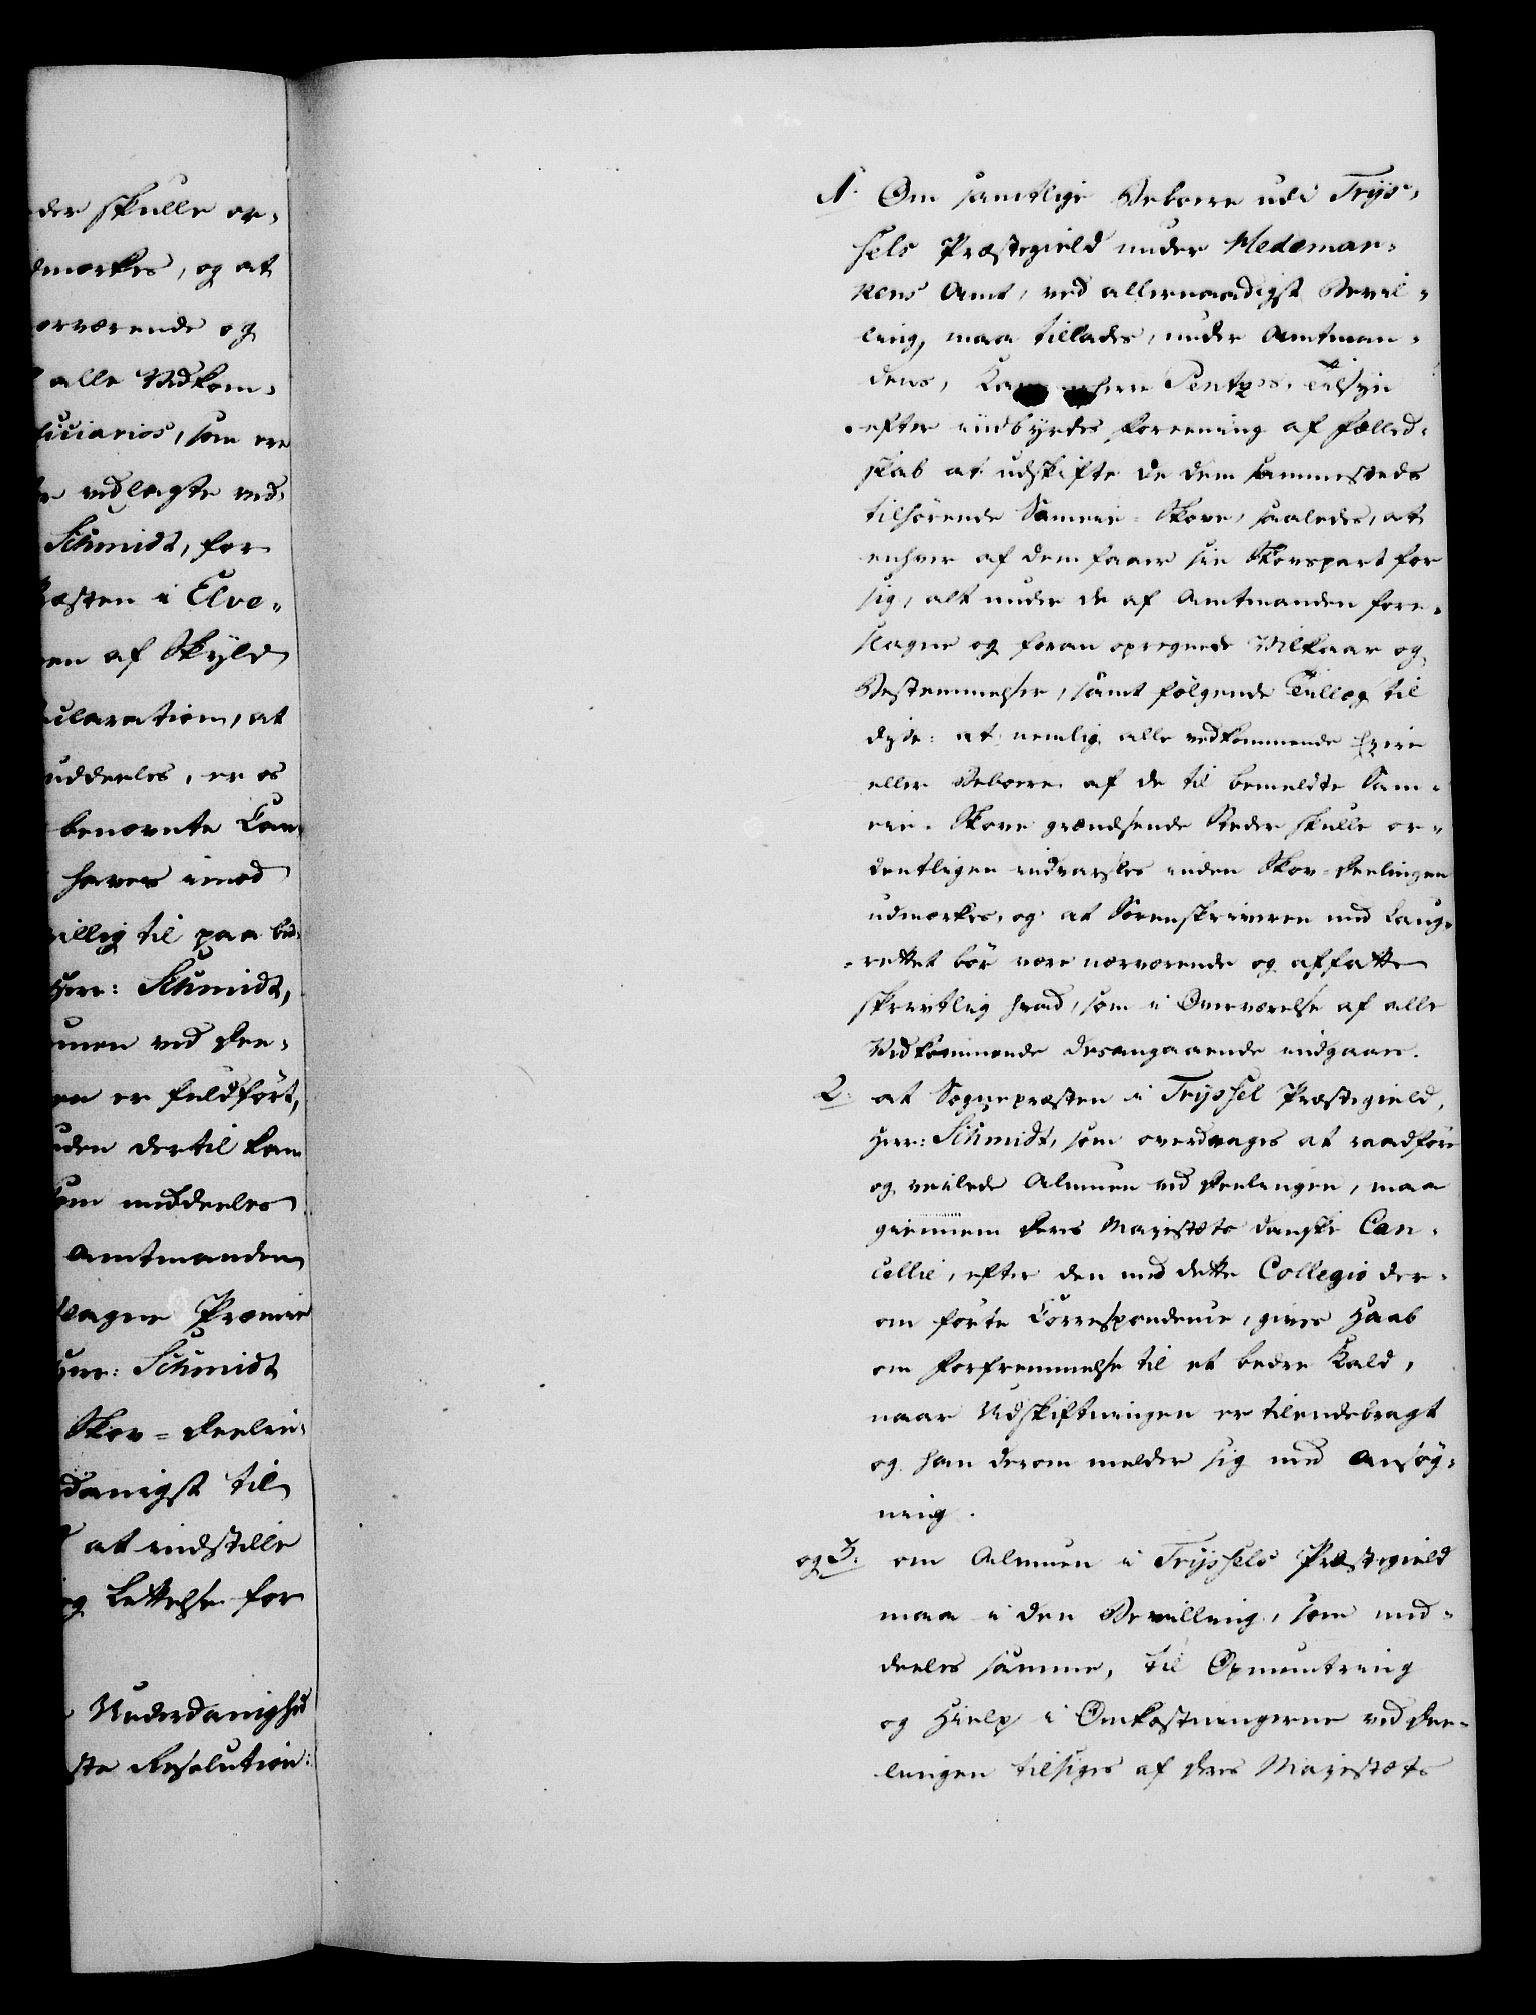 der skulle or-
dmerkes, og at
ærværende og
alle Vedkom-
ficiarios, som ere
vedlagte ved-
Schmidt, for
æsten i Elve-
en af Skyld
claration, at
uddeeles, er os
benævnte Com-
haves imod
villig til paa bed-
Herr: Schmidt,
muen ved Dee-
en er fuldført,
uden dertil kom
om meddeeles
Amtmanden
slagne Præmie
Herr: Schmidt
Skov-Deelin-
danigst til
at indstille
og Lettelse for
Underdanighed
ste Resolution:
1. Om samtlige Beboere udi Trys-
sels Præstegield under Hedemar-
kens Amt, ved allernaadigst Bevil-
ling, maa tillades, under Amtman-
dens, Pentzes, Tilsyn
efter indbyrdes Foreening af Fælled-
skab at udskifte de dem sammesteds
tilhørende Sameie-Skove, saaledes, at
enhver af dem faaer sin Skovspart for
sig, alt under de af Amtmanden fore-
slagne og foran opregnede Vilkaar og
Bestemmelser, samt følgende Tillæg til
disse: at nemlig alle vedkommende Eiere
eller Beboere af de til bemeldte Sam-
eie-Skove grændsende Steder skulle or-
dentligen indvarsles inden Skov-Deelingen
udmerkes, og at Sorenskriveren med Laug-
rettet bør være nærværende og affatte
skrivtlig hvad, som i Overværelse af alle
Vedkommende desangaaende indgaaes.
2. at Sognepræsten i Tryssel Præstegield,
Herr: Schmidt, som overdrages at raadføre
og veilede Almuen ved Deelingen, maa
giennem Deres Majestæts danske Can-
cellie, efter den med dette Collegio der-
om førte Correspondence, gives Haab
om Forfremmelse til et bedre Kald,
naar Udskiftningen er tilendebragt
og han derom melder sig med Ansøg-
ning.
og 3. om Almuen i Tryssels Præstegield
maa i den Bevilling, som med-
deeles samme, til Opmuntring
og Hielp i Omkostningerne ved Dee-
lingen tilsiges af Deres Majestæts